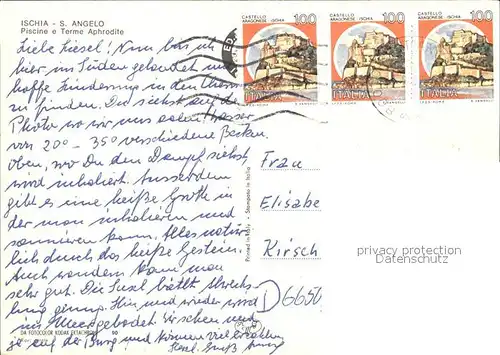 ISCHIA - S. ANGELO
Piscine e Terme Aphrodite
Liebe Liesel! Nun bin ich
hier im Süden gelandet und
hoffe Linderung in den Thermen
zu finden. Du siehst auf dem
Photo wo wir uns aalen Wasser
von 20° - 35° verschiedene Becken.
Oben, wo Du den Dampf siehst,
wird inhaliert. Ausserdem
gibt es eine heiße Grotte in
der man inhalieren und
kann. Alles natür-
lich durch das heiße Gestein.
Auch wandern kann man
sehr gut. Die Insel
genug. Hin und wieder wird
im Meer gebadet. Wir schen und
ja auf der Burg und können viel erzählen
Herzl. Gruß
CASTELLO ARAGONESE ISCHIA 100
ITALIA
CASTELLO ARAGONESE ISCHIA 100
ITALIA
CASTELLO ARAGONESE ISCHIA 100
ITALIA
Frau
Elisabe
Kirsch
D 6650
Printed in Italy - Stampato in Italia
DA FOTOCOLOR KODAK EKTACHROME
privacy protection
Datenschutz